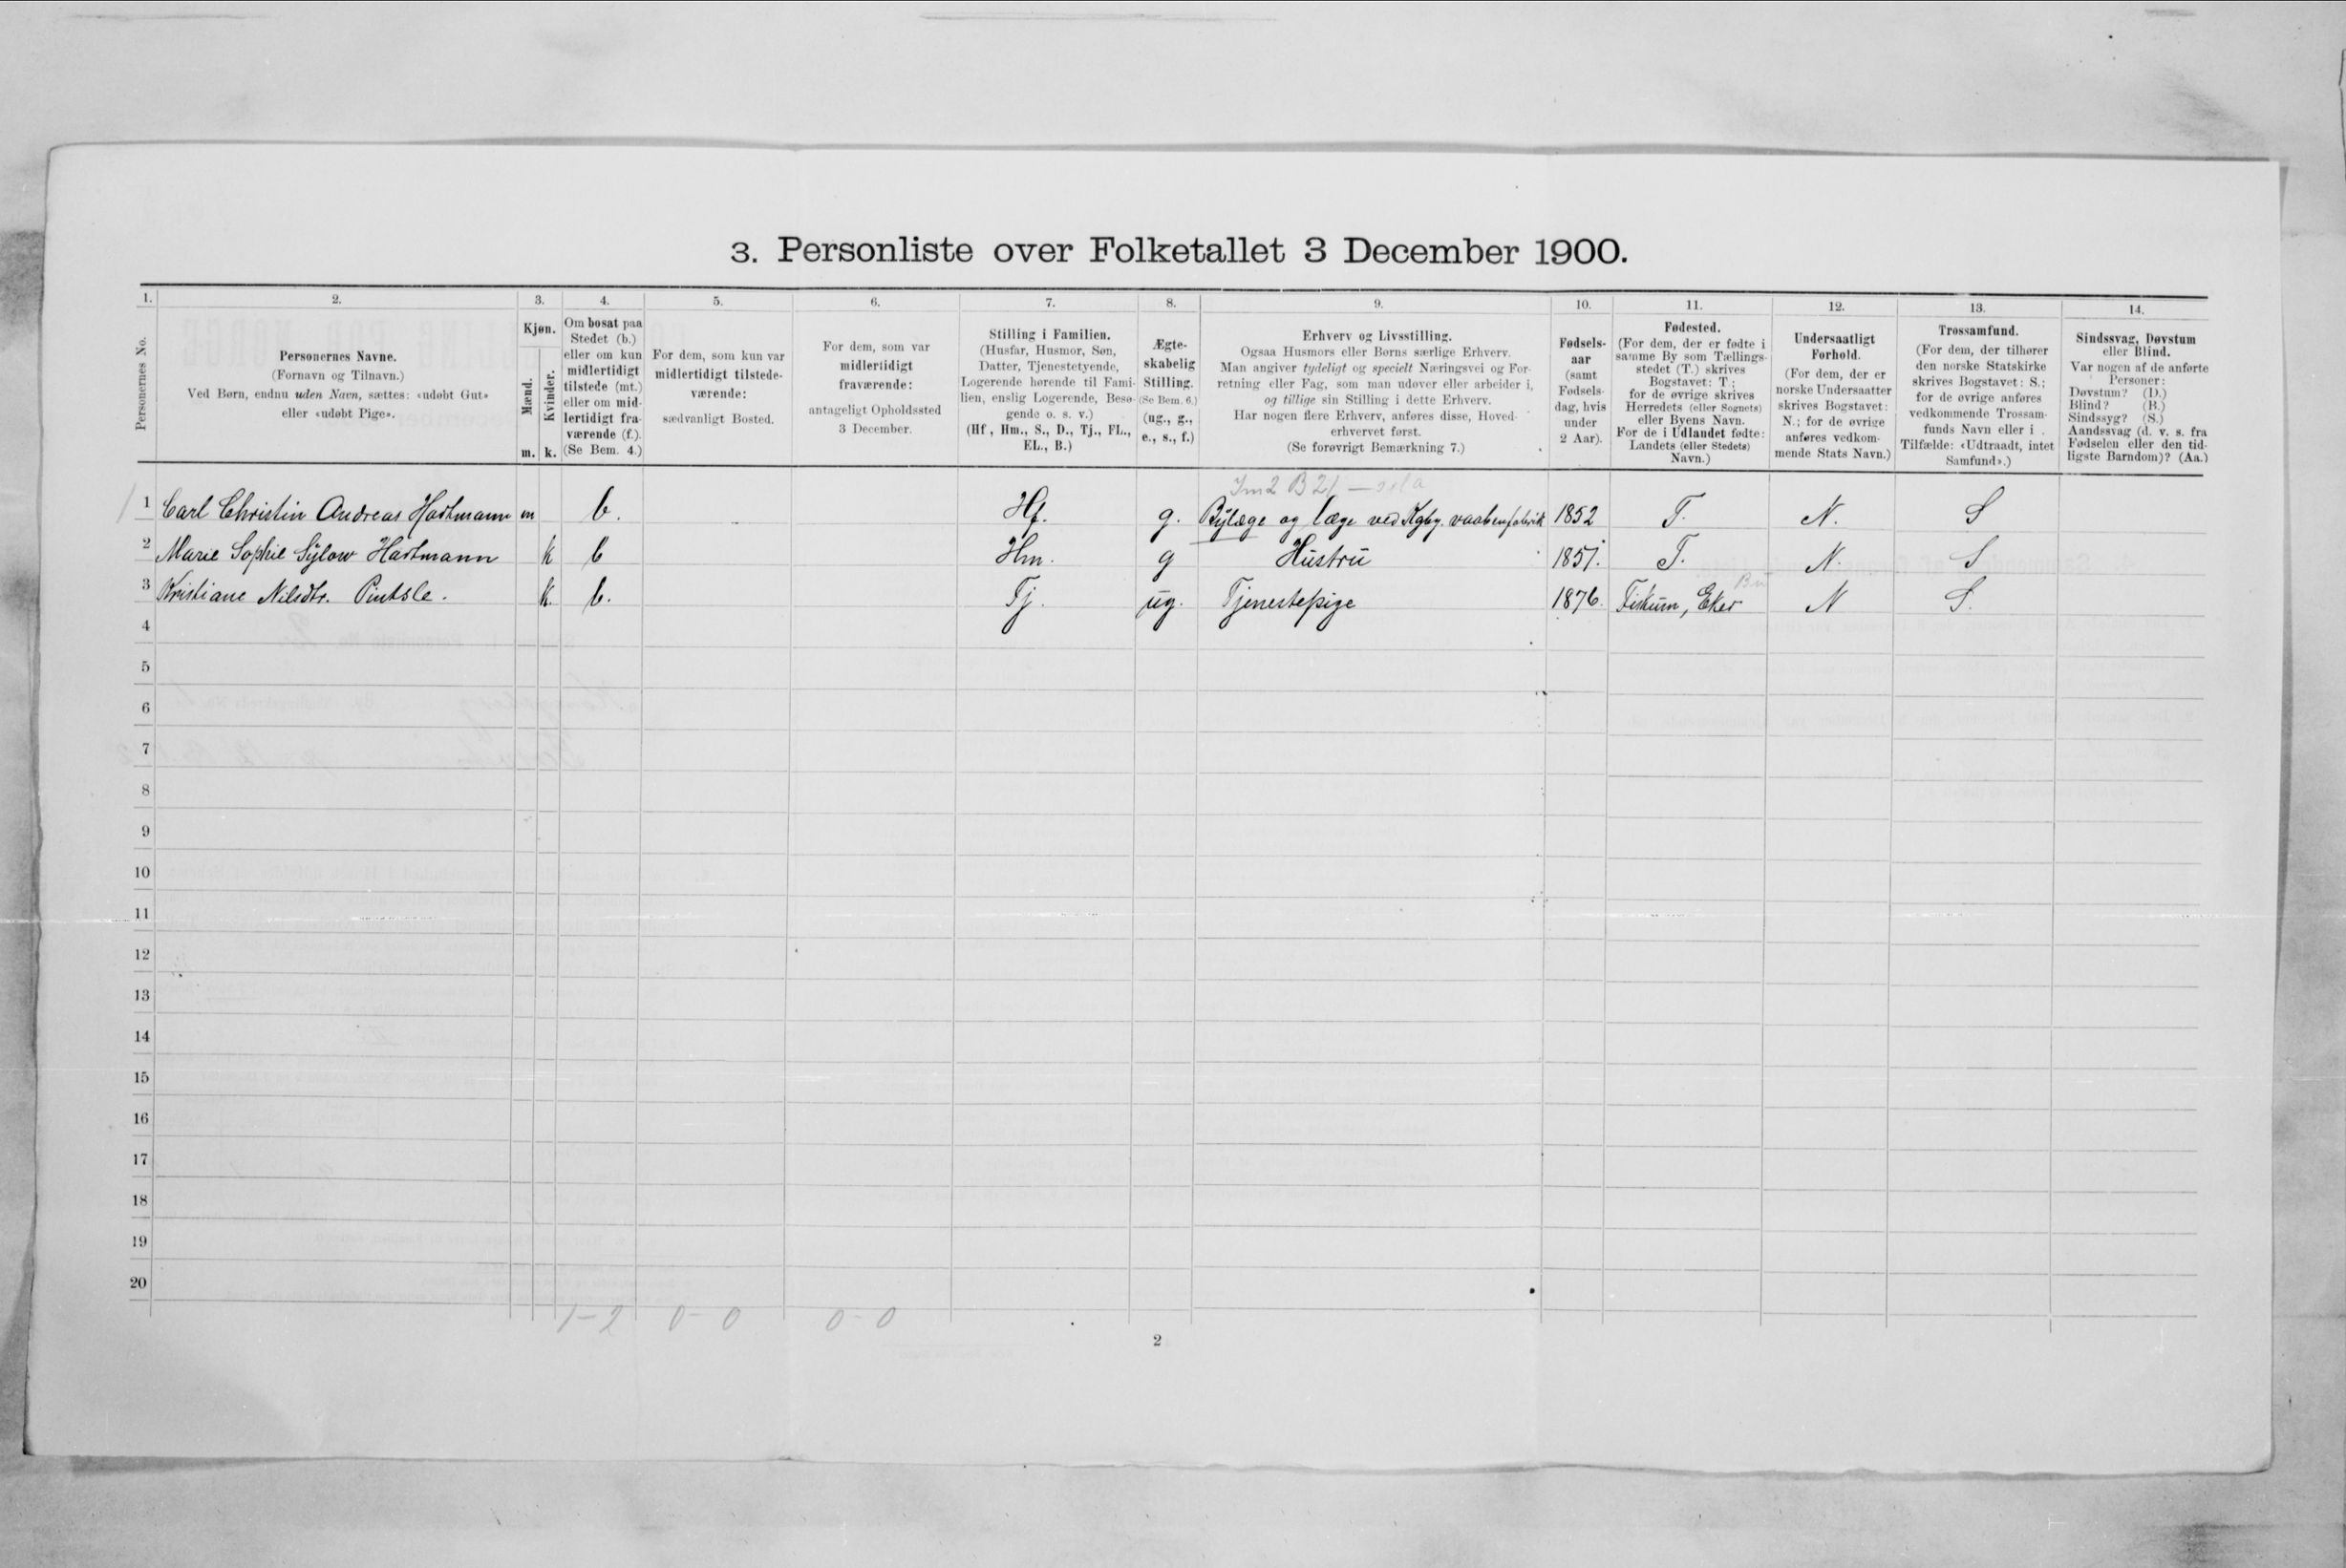 3. Personliste over Folketallet 3 December 1900.
1. 2. 3. 4. 5. 6. 7. 8. 9. 10. 11. 12. 13. 14.
Personernes No.
Personernes Navne.
(Fornavn og Tilnavn.)
Ved Børn, endnu uden Navn, sættes: «udøbt Gut»
eller «udøbt Pige».
Kjøn.
Mænd.
Kvinder.
m. k.
Om bosat paa
Stedet (b.)
eller om kun
midlertidigt
tilstede (mt.)
eller om mid-
lertidigt fra-
værende (f.).
(Se Bem. 4.)
For dem, som kun var
midlertidigt tilstede-
værende:
sædvanligt Bosted.
For dem, som var
midlertidigt
fraværende:
antageligt Opholdssted
3 December.
Stilling i Familien.
(Husfar, Husmor, Søn,
Datter, Tjenestetyende,
Logerende hørende til Fami-
lien, enslig Logerende, Besø-
gende o. s. v.)
(Hf, Hm., S., D., Tj., FL.,
EL., B.)
Ægte-
skabelig
Stilling.
(Se Bem. 6.)
(ug., g.,
e., s., f.)
Erhverv og Livsstilling.
Ogsaa Husmors eller Børns særlige Erhverv.
Man angiver tydeligt og specielt Næringsvei og For-
retning eller Fag, som man udøver eller arbeider i,
og tillige sin Stilling i dette Erhverv.
Har nogen flere Erhverv, anføres disse, Hoved-
erhvervet først.
(Se forøvrigt Bemærkning 7.)
Fødsels-
aar
(samt
Fødsels-
dag, hvis
under
2 Aar).
Fødested.
(For dem, der er fødte i
samme By som Tællings-
stedet (T.) skrives
Bogstavet: T;
for de øvrige skrives
Herredets (eller Sognets)
eller Byens Navn.
For de i Udlandet fødte:
Landets (eller Stedets)
Navn.)
Undersaatligt
Forhold.
(For dem, der er
norske Undersaatter
skrives Bogstavet:
N.; for de øvrige
anføres vedkom-
mende Stats Navn.)
Trossamfund.
(For dem, der tilhører
den norske Statskirke
skrives Bogstavet: S.;
for de øvrige anføres
vedkommende Trossam-
funds Navn eller i
Tilfælde: «Udtraadt, intet
Samfund».)
Sindssvag, Døvstum
eller Blind.
Var nogen af de anførte
Personer:
Døvstum? (D.)
Blind? (B.)
Sindssyg? (S.)
Aandssvag (d. v. s. fra
Fødselen eller den tid-
ligste Barndom)? (Aa.)
1 Carl Christin Andreas Hartmann m b. Hf. g. Bylæge og læge ved Kgbg. vaabenfabrik 1852 T. N. S
2 Marie Sophie Sylow Hartmann k b Hm. g Hustru 1851. T. N. S
3 Kristiane Nilsdtr. k. b. Tj. ug. Tjenestepige 1876. Fiskum, Eker N S.
4
5
6
7
8
9
10
11
12
13
14
15
16
17
18
19
20
1-2 0-0 0-0
2